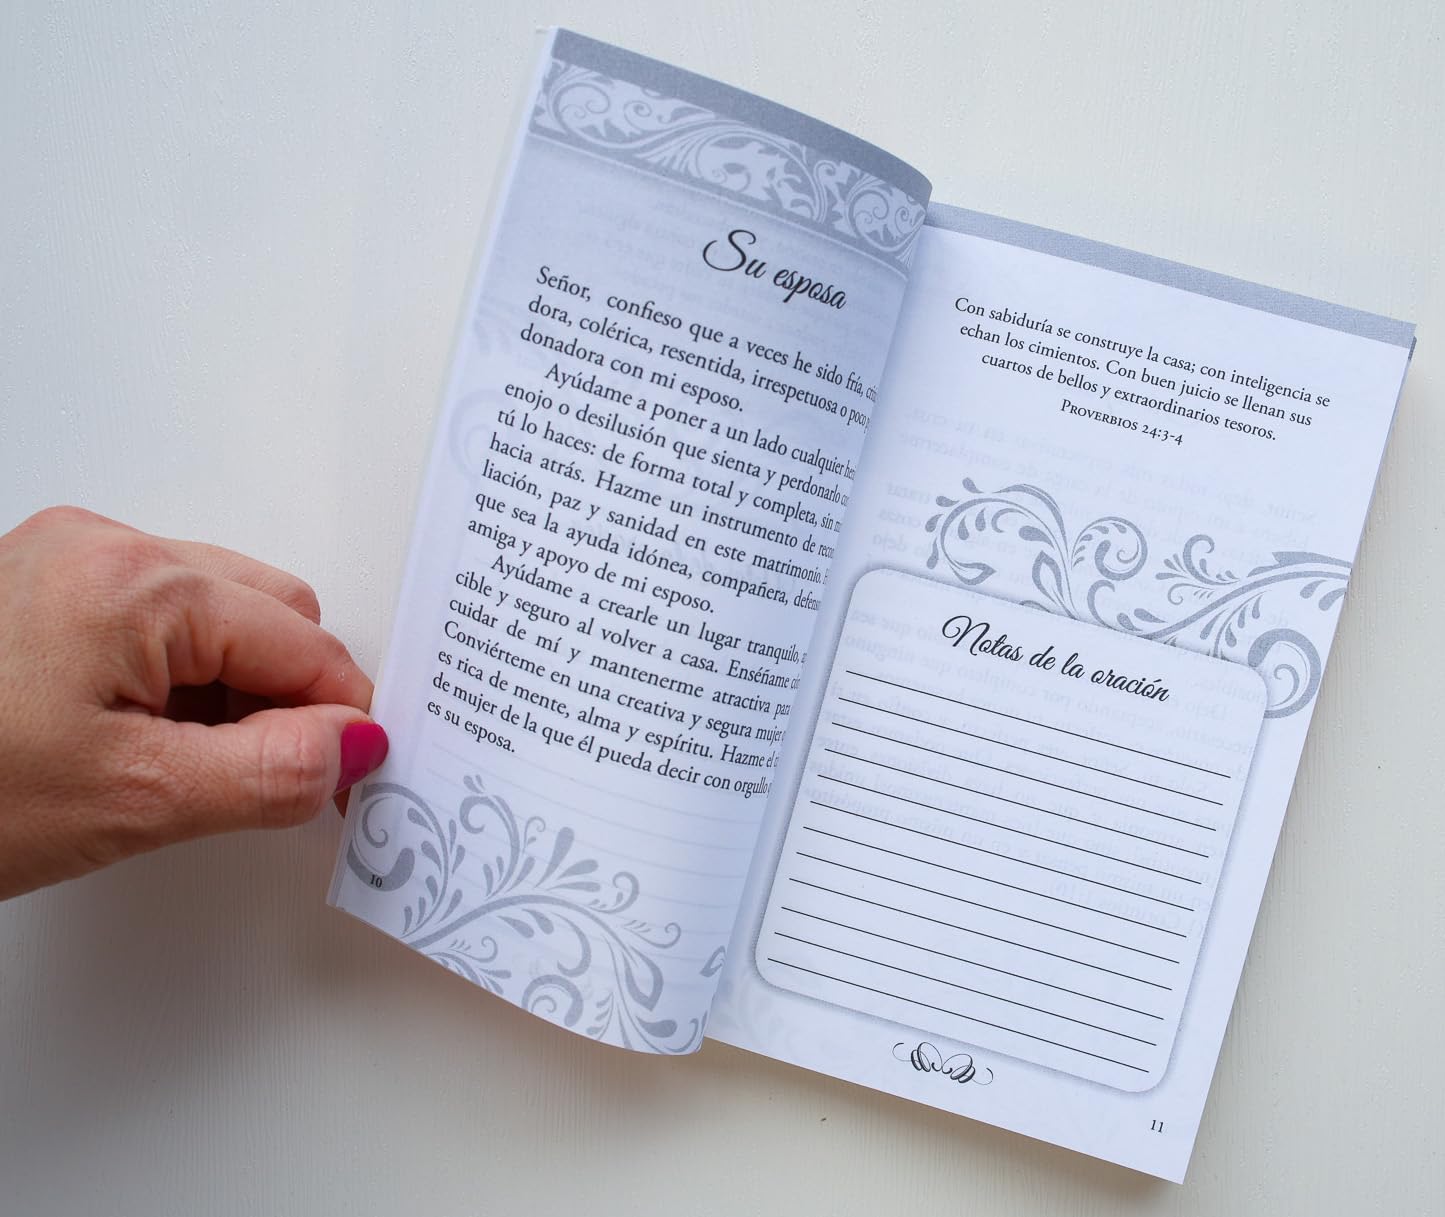 Su esposa
Señor, confieso que a veces he sido fría,
dora, colérica, resentida, irrespetuosa o poco
donadora con mi esposo.
Ayúdame a poner a un lado cualquier
enojo o desilusión que sienta y perdonarlo
tú lo haces: de forma total y completa, sin
hacia atrás. Hazme un instrumento de
liación, paz y sanidad en este matrimonio.
que sea la ayuda idónea, compañera,
amiga y apoyo de mi esposo.
Ayúdame a crearle un lugar tranquilo,
cible y seguro al volver a casa. Enséñame
cuidar de mí y mantenerme atractiva para
Conviérteme en una creativa y segura mujer
es rica de mente, alma y espíritu. Hazme el
de mujer de la que él pueda decir con orgullo
es su esposa.
10
Con sabiduría se construye la casa; con inteligencia se
echan los cimientos. Con buen juicio se llenan sus
cuartos de bellos y extraordinarios tesoros.
Proverbios 24:3-4
Notas de la oración
11